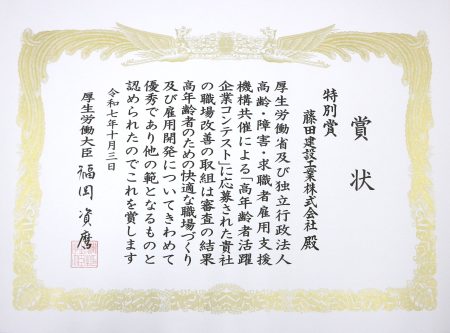 賞状
特別賞
藤田建設工業株式会社 殿
厚生労働省及び独立行政法人
高齢・障害・求職者雇用支援
機構共催による「高年齢者活躍
企業コンテスト」に応募された貴社
の職場改善の取組は審査の結果
高年齢者のための快適な職場づくり
及び雇用開発についてきわめて
優秀であり他の範となるものと
認められたのでこれを賞します
令和七年十月三日
厚生労働大臣 福岡資麿